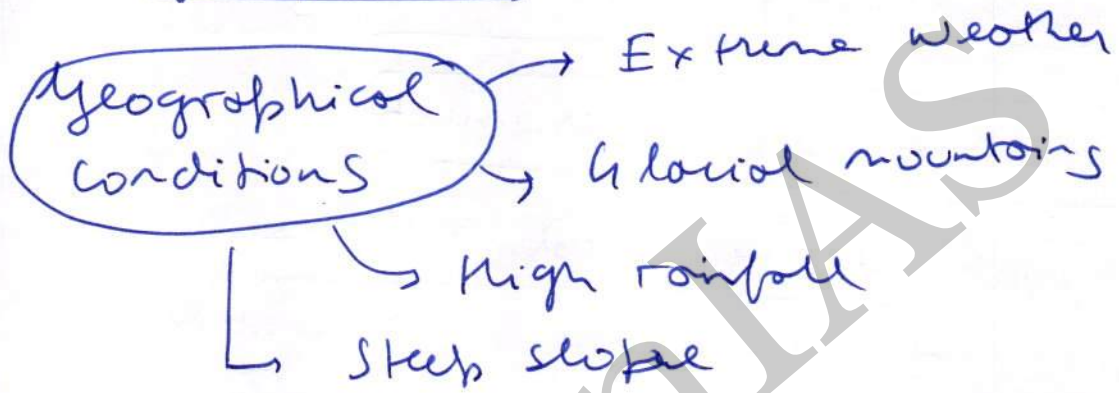 Geographical
conditions
Extreme weather
Glacial mountains
High rainfall
Steep slope
IAS